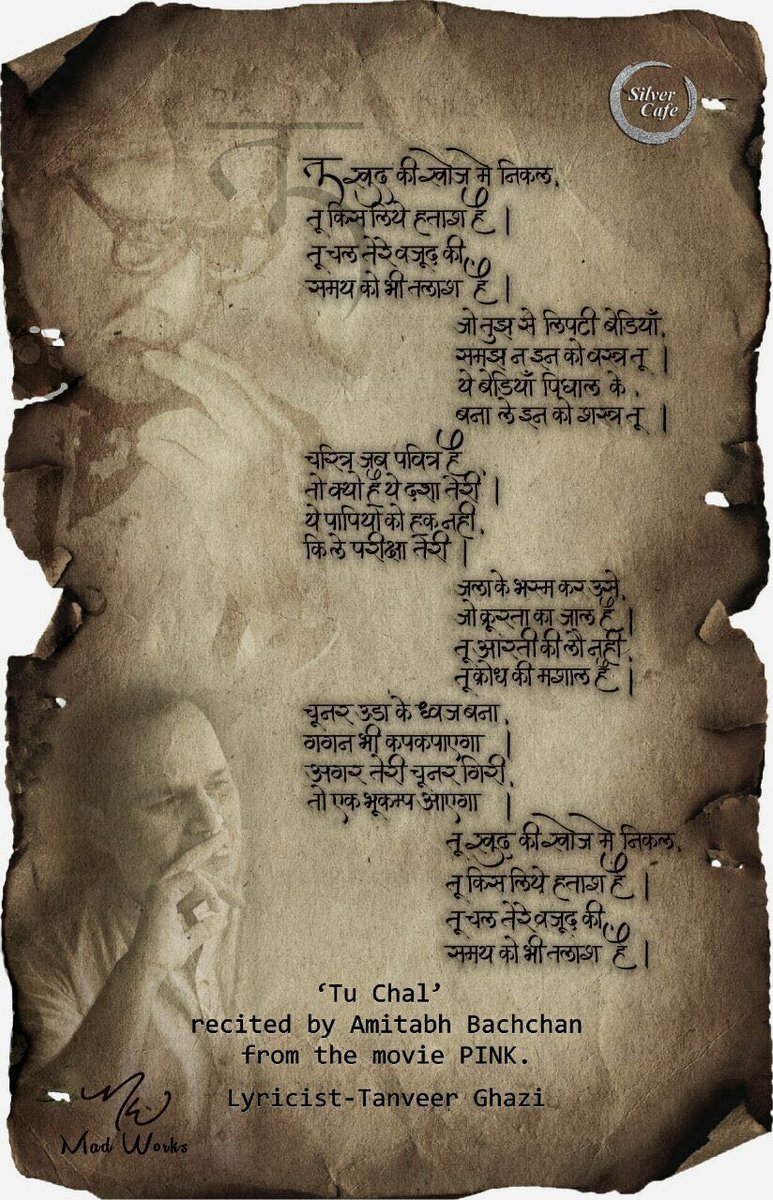 Silver
Cafe
तू खुद की खोज मे निकल,
तू किस लिये हताश है।
तू चल तेरे वजूद की,
समय को भी तलाश है।
जो तुझ से लिपटी बेडियाँ,
समझ न इन को वस्त्र तू।
ये बेडियाँ पिघाल के,
बना ले इन को शस्त्र तू।
चरित्र जब पवित्र है,
तो क्यो है ये दशा तेरी।
ये पापियों को हक नही,
कि ले परीक्षा तेरी।
जला के भस्म कर उसे,
जो क्रूरता का जाल है।
तू आरती की लौ नही,
तू क्रोध की मशाल है।
चूनर उडा के ध्वज बना,
गगन भी कपकपाएगा।
अगर तेरी चूनर गिरी,
तो एक भूकम्प आएगा।
तू खुद की खोज मे निकल,
तू किस लिये हताश है।
तू चल तेरे वजूद की,
समय को भी तलाश है।
‘Tu Chal’
recited by Amitabh Bachchan
from the movie PINK.
Lyricist-Tanveer Ghazi
Mad Works